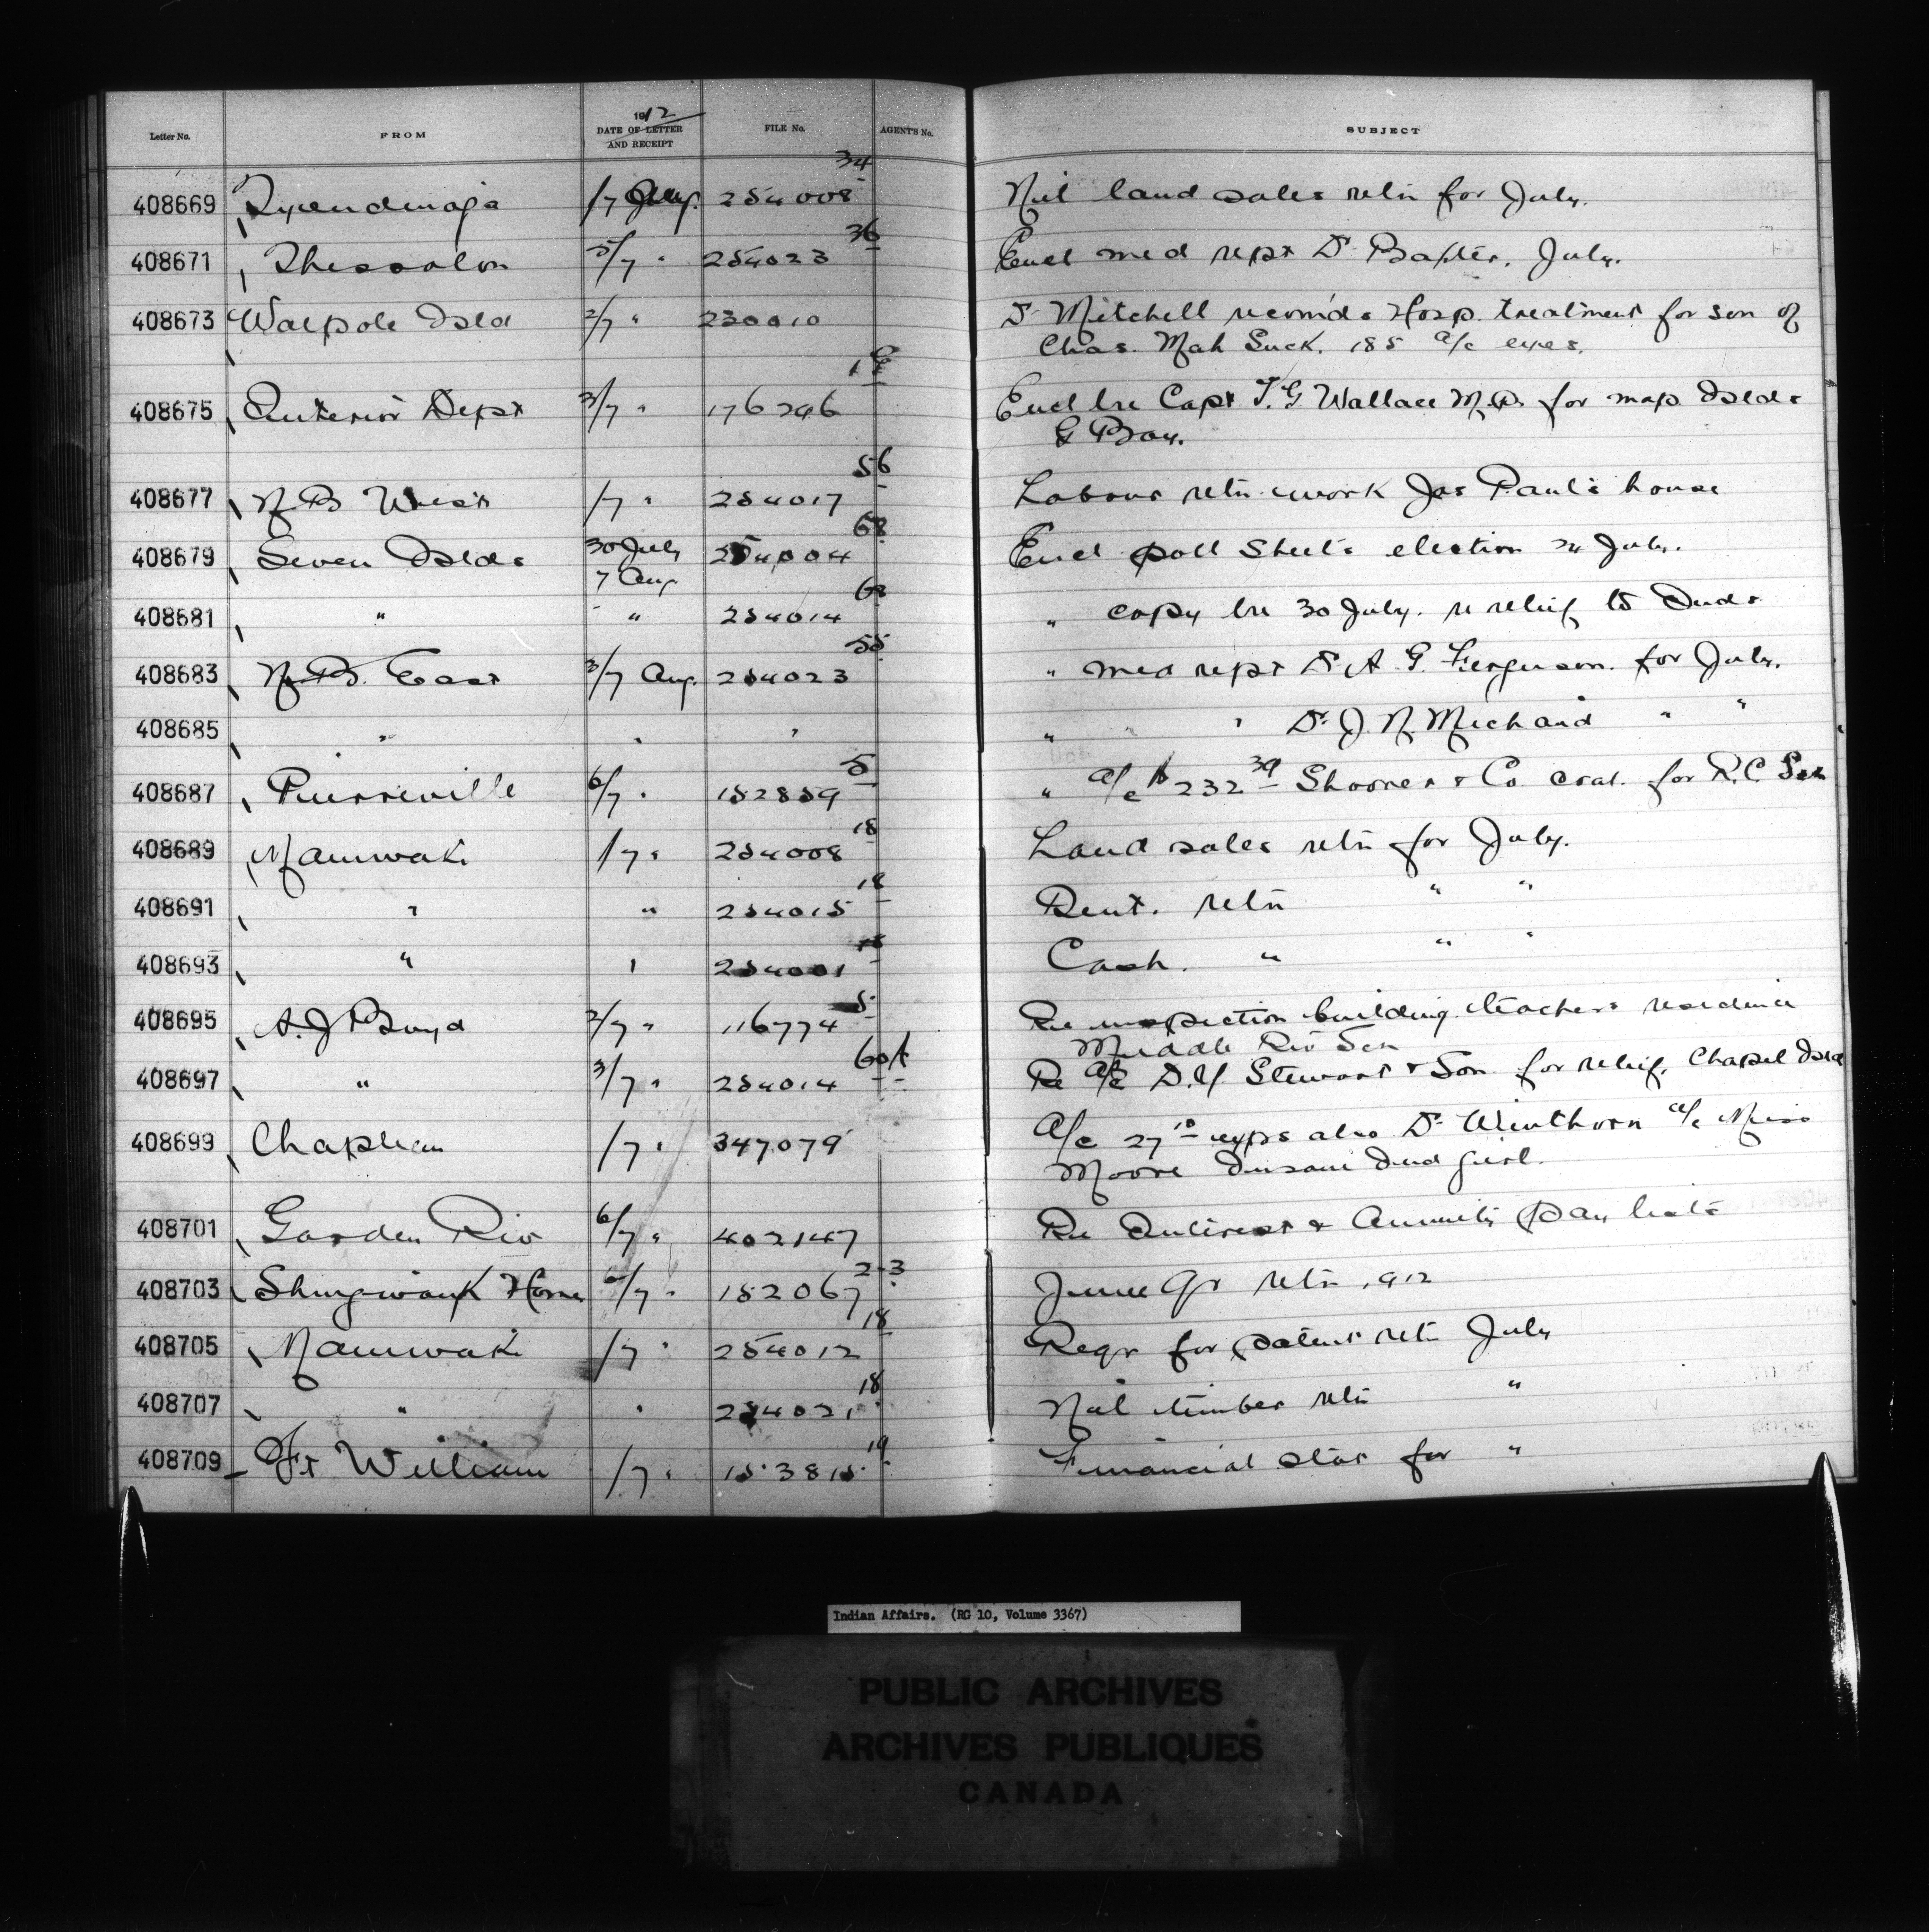 Letter No. FROM 1912 DATE OF LETTER AND RECEIPT FILE No. AGENT'S No. SUBJECT
408669 Tyendinaga 1/7 Aug. 254008 34 Nil land sales retn for July.
408671 Thessalon 5/7 " 254023 36 Encl med rept Dr Baxter, July.
408673 Walpole Isld 2/7 " 230010 Dr Mitchell recomds Hosp. treatment for son of
Chas. Mah Suck. 185 a/c expes.
408675 Interior Dept 3/7 " 176246 Encl lre Capt T. G Wallace M.P. for map Islds
G Bay.
408677 N B West 1/7 " 254017 56 Labour retn work Jas Paul's house
408679 Seven Islds 30 July 254004 68 Encl poll sheets election 24 July.
7 Aug
408681 " " " 254014 68 " copy lre 30 July. re relief to Inds
408683 N. B. East 3/7 Aug. 254023 55 " med rept Dr A. G. Ferguson. for July.
408685 " " " " " " Dr. J. N. Michaud " "
408687 Pierreville 6/7 " 152859 5 " a/c $232 39 Shooner & Co. coal. for R.C. Scs
408689 Maniwaki 1/7 " 254008 18 Land sales retn for July.
408691 " " 254015 18 Rent. retn " "
408693 " " 254001 18 Cash. " " "
408695 A. J Boyd 2/7 " 116774 5 Re inspection building teachers residence
Middle Riv Sch
408697 " 3/7 " 254014 60A Re a/c D. Y. Stewart & Son for relief, Chapel Isld
408699 Chapleau 1/7 " 347079 A/c 27 10 exps also Dr Winthorn a/c Miss
Moore Insane Ind girl.
408701 Garden Riv 6/7 " 402147 Re Interest & Annuity pay lists
408703 Shingwauk Home 6/7 " 182067 2-3 June Qr retn 1912
408705 Maniwaki 1/7 " 254012 18 Reqr for patent retn July
408707 " " 254021 18 Nil timber retn "
408709 Ft William 1/7 " 153815 19 Financial stat for "
Indian Affairs. (RG 10, Volume 3367)
PUBLIC ARCHIVES
ARCHIVES PUBLIQUES
CANADA